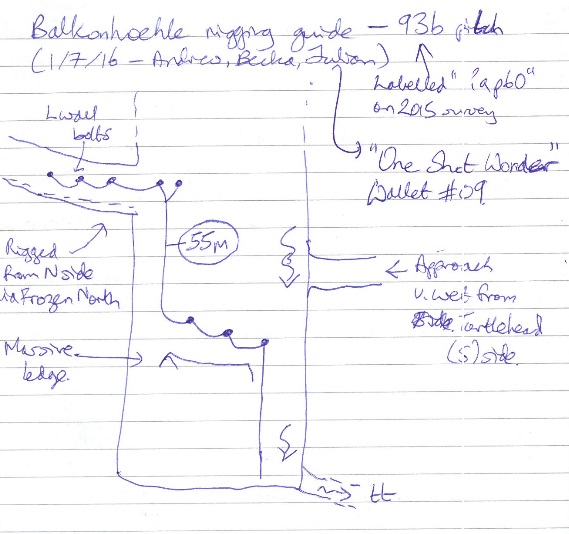 Balkonhoehle rigging guide - 93b pitch
(1/7/16 - Andrew, Becka, Julian)
Labelled "?ap60"
on 2015 survey
"One Shot Wonder"
Wallet #09
L wall
bolts
55m
Rigged
from N side
via Frozen North
Massive
ledge
← Approach
v. wet from
Turtlehead
(S) side.
tt